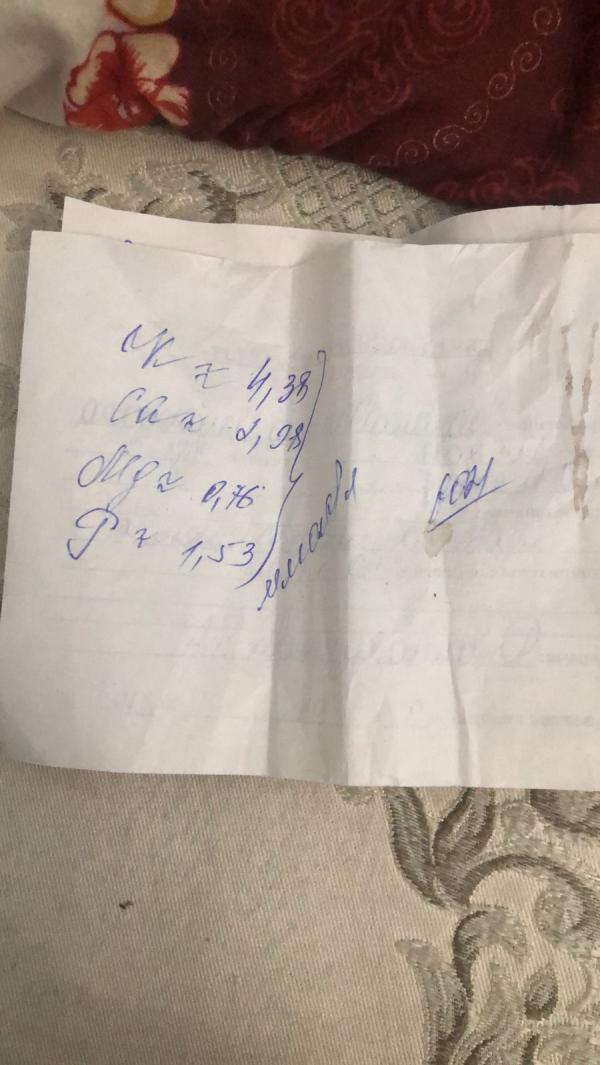 K = 4,38
Ca = 1,98
Mg = 0,76
P = 1,53
ммоль/л